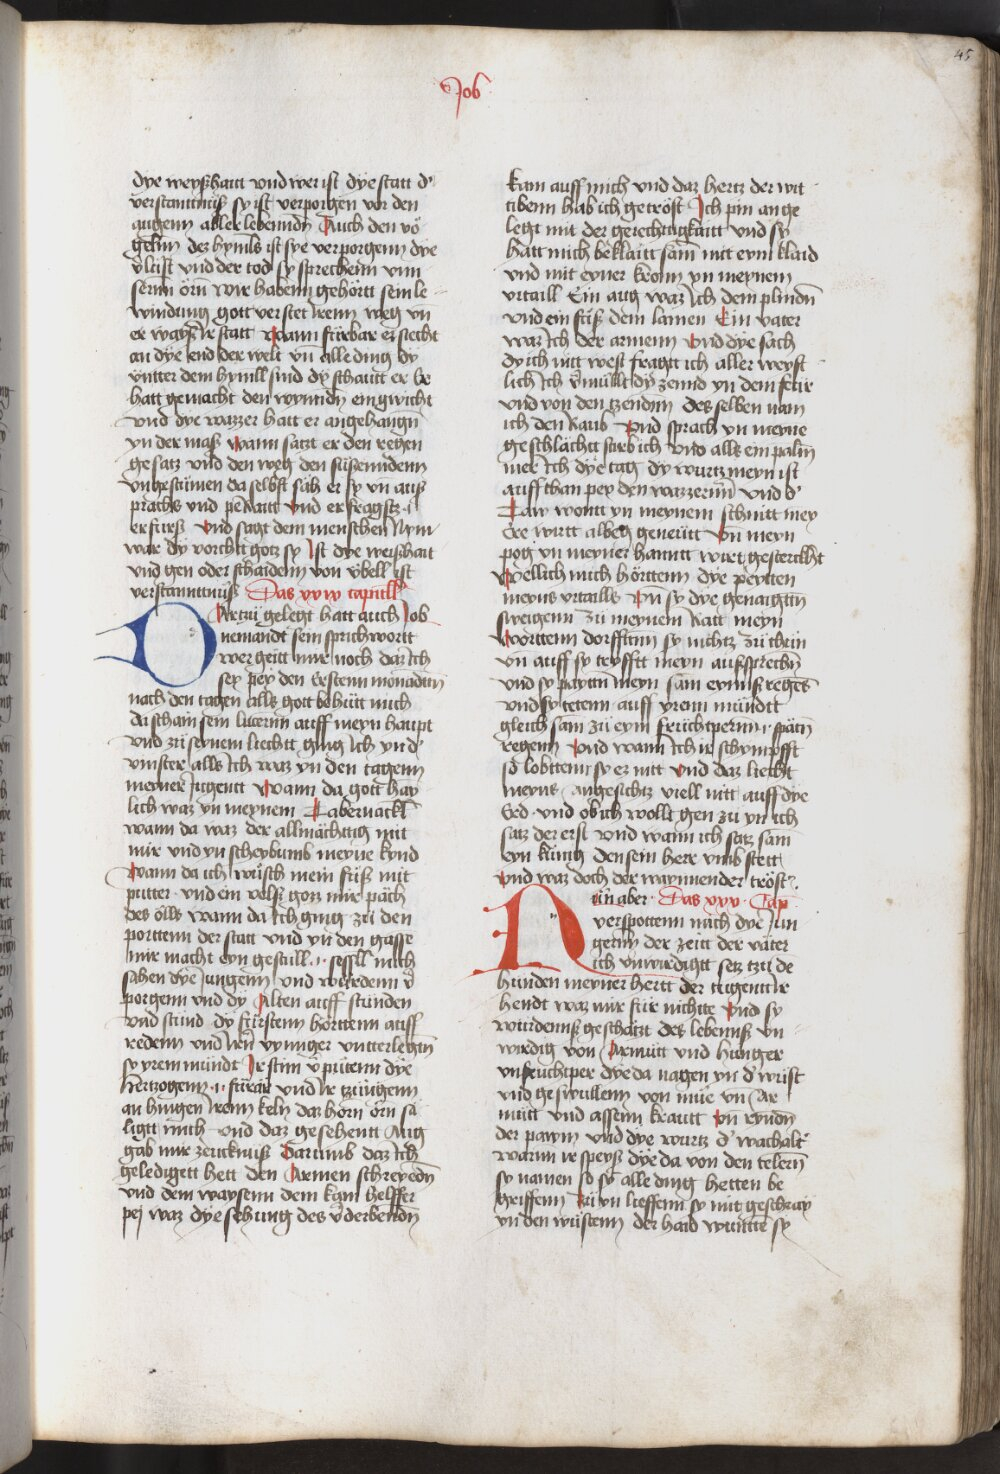 45
Job
dye weyszhait vnd wer ist dye statt d'
verstanntnüß sy ist verporgen vor den
augenn aller lebenndn̄ Auch den vö
gelnn dez hymls ist sye verporgenn dye
v̓lust vnd der tod sy sprechenn vnn
sernn örn̄ wir habenn gehörtt sein le
windung gott verstet irenn weg vn̄
er wayß Ir statt Wann fürbar er siecht
an dye end der welt vn̄ alle ding dy
vntter dem hymll sind dy schautt er Er
hatt gemacht den wynndn̄ ein gwicht
vnd dye wazzer hatt er angehangn̄
yn der maß wann satzt er den regen
gesatz vnd den weg den süsennndenn
vngestümen da selbst sah er sy vn̄ auß
prachs vnd peraitt Vnd erfragtz
erfurß Vnd sagt dem menschen Nym
war dy vorcht gotz sy Ist dye weißhait
vnd gen oder schaidenn von v̈bell ist
verstanntnüß Das xxix capitell
Dartzü gelegt hatt auch Job
nemandt sein sprichwortt
wer geitt mir noch daz Ich
sey pey den Erstenn monadtn̄
nach den tagen alls gott behütt mich
da schain sein lucernn auff meyn haupt
vnd zü seynem liechtt ging Ich yn d'
vinster alls Ich waz yn den tagenn
meyner jugentt Wann da gott hay
lich waz yn meynem Tabernackl̄
wann da waz der allmächtig mit
mir vnd yn scheybumb meyne kynd
Wann da ich wüsch mein füß mit
putter vnd ein velß goz mir päch
des ölls wann da Ich ging zü den
porttenn der statt vnd yn den gasse
mir macht eyn gestüll .i. sessll mich
sahen dye Jungenn vnd wurdenn v̓
porgenn vnd dy Alten auff stünden
vnd stünd dy fürstenn hörttenn auff
redenn vnd irn̄ vynnger vntterlegtn̄
sy yrem mündt Ir stim v̓pütenn dye
hertzogenn .i. fürär vnd Ir tzüngenn
an hingen Irenn keln daz horn örn sä
ligtt mich vnd daz gesehentt Aug
gab mir zeucknüß Darumb daz Ich
geledigett hett den Armen schreyedn̄
vnd dem waysenn dem kain helffer
pej waz dye sehung des v̓derbendn̄
kam auff mich vnd daz hertz der wit
tibenn hab ich getröst Ich pin ange
legt mit der gerechtigkaitt vnd sy
hatt mich beklaitt sam mit eym klaid
vnd mit eyner kronn yn meynem
vrtaill Ein aug waz Ich dem plindn̄
vnd ein füß dem lamen Ein vater
waz Ich der armenn Vnd dye sach
dy ich nitt west fragtt ich aller weyst
lich Ich v̓müllt dy zennd yn dem feür
vnd von den tzendnn des selben nam
ich den Raub Vnd sprach yn meyne
geschlächtt stirb ich vnd alls ein palm̄
mer Ich dye tag dy wurtz meyn ist
auff than pey den wazzernn̄ vnd d'
Taw wontt yn meynem schnitt mey
Ere wirtt albeg geneütt Vn̄ meyn
pog yn meyner hanntt wirt gesterckht
Wellich mich hörttenn dye peytten
meyns vrtaills Vn̄ sy dye genaigtn̄
sweigenn zü meynem Ratt meyn
Worttenn dorfftenn sy nichtz zü thein
vn̄ auff sy treyfftt meyn außprechn̄
vnd sy paytn̄ meyn sam eynnß regēs
vnd sy tetenn auff yrenn mündtt
gleich sam zü eym früchtpernn spätn̄
regenn Vnd wann Ich ir schympfft
so lobttenn sy ez nitt vnd daz liecht
meyns angesichtz viell nitt auff dye
Erd vnd ob ich wollt gen zü yn ich
saz der erst vnd wann ich saz sam
eyn künig den sein herr vmb stett
Vnd waz doch der waynnender tröst
Nün aber Das xxx Cap̄
verspottenn mich dye jun
genn der zeitt der väter
ich v̓nwirdigtt setz tzü dē
hünden meyner hertt der tugentt ir
hendt waz mir für nichtte Vnd sy
würdennß geschätzt des lebennß vn
wirdig von Armütt vnd hünger
vnfrüchtper dye da nagen yn d' wüst
vnd geswullenn von müe vn̄ Ar
mütt vnd assenn krautt Vn̄ ryndn̄
der pawm vnd dye wurtz d' wachalt̄
warnn ir speyß dye da von den telern̄
sy namen so sy alle ding hetten be
griffenn Zü yn lieffenn sy mit geschray
yn den wüstenn der haid wuntte sy